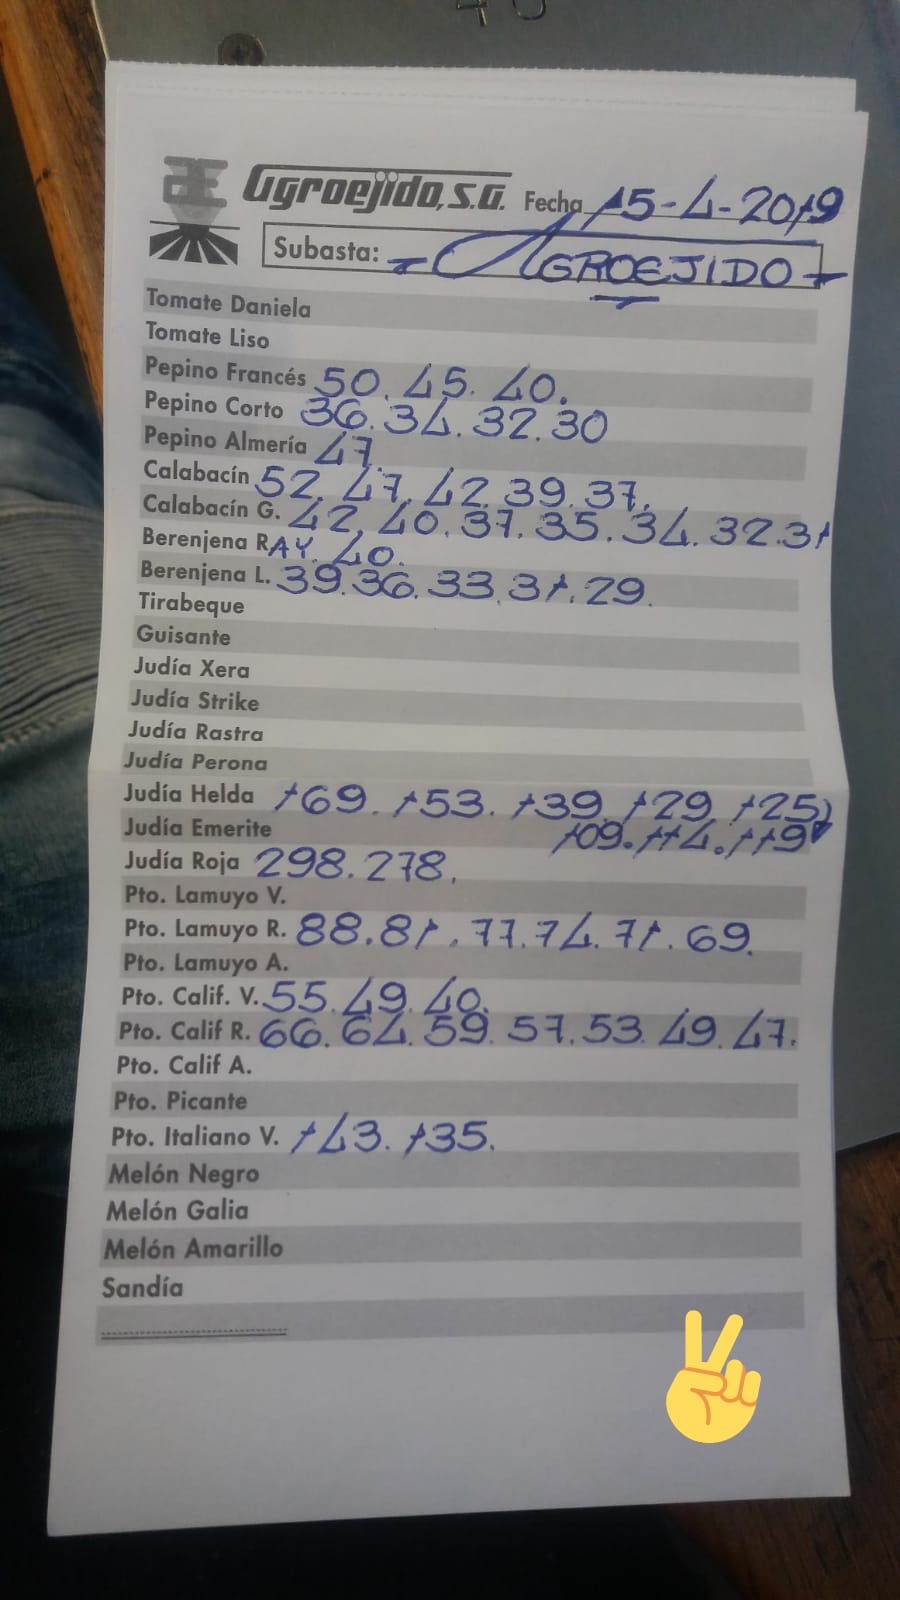 Agroejido, S.A. Fecha 15-4-2019
Subasta: - AGROEJIDO -
Tomate Daniela
Tomate Liso
Pepino Francés 50. 45. 40.
Pepino Corto 36. 34. 32. 30
Pepino Almería 47.
Calabacín 52. 47. 42. 39. 37.
Calabacín G. 42. 40. 37. 35. 34. 32. 31
Berenjena RAY. 40.
Berenjena L. 39. 36. 33. 31. 29.
Tirabeque
Guisante
Judía Xera
Judía Strike
Judía Rastra
Judía Perona
Judía Helda 169. 153. 139. 129. 125)
109. 114. 119
Judía Emerite
Judía Roja 298. 278.
Pto. Lamuyo V.
Pto. Lamuyo R. 88. 81. 77. 74. 71. 69.
Pto. Lamuyo A.
Pto. Calif. V. 55. 49. 40.
Pto. Calif R. 66. 64. 59. 57. 53. 49. 47.
Pto. Calif A.
Pto. Picante
Pto. Italiano V. 143. 135.
Melón Negro
Melón Galia
Melón Amarillo
Sandía